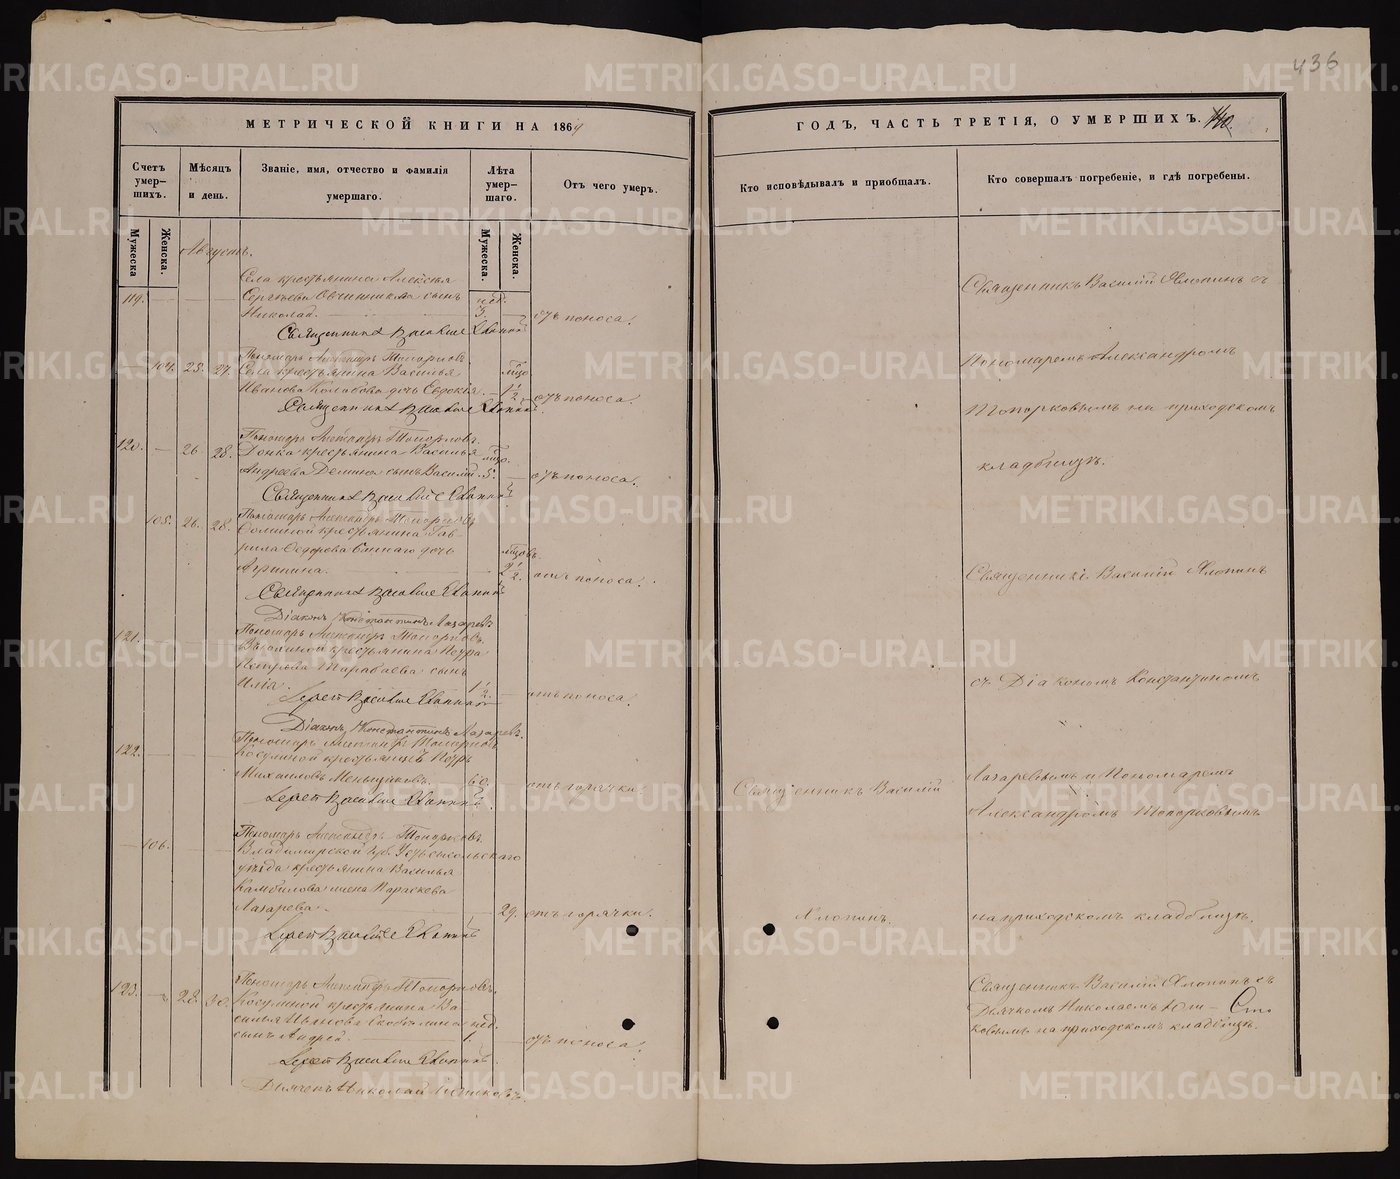 436
МЕТРИЧЕСКОЙ КНИГИ НА 1869
ГОДЪ, ЧАСТЬ ТРЕТІЯ, О УМЕРШИХЪ.
Счетъ умер-шихъ.
Мѣсяцъ и день.
Званіе, имя, отчество и фамилія умершаго.
Лѣта умер-шаго.
Отъ чего умеръ.
Кто исповѣдывалъ и пріобщалъ.
Кто совершалъ погребеніе, и гдѣ погребены.
Мужеска
Женска.
Мужеска.
Женска.
Августъ.
Села крестьянина Алексѣя
119. Сергѣева Овчинникова сынъ нед.
Николай. 3. отъ поноса.
Священникъ Василіе Хлопинъ
Пономарь Александръ Топорковъ
104. 25. 27. Села крестьянина Василья
Иванова дочь Евдокія 1 1/2. отъ поноса.
Священникъ Василіе Хлопинъ
Пономарь Александръ Топорковъ
120. 26 28. крестьянина Василья
Андреева Демина сынъ Василій 5. отъ поноса.
Священникъ Василіе Хлопинъ
Пономарь Александръ Топорковъ
105. 26. 28. крестьянина Гав-
рила Ѳедорова дочь
2 1/2. отъ поноса.
Священникъ Василіе Хлопинъ
Діаконъ Константинъ Лазаревъ
Пономарь Александръ Топорковъ
121. крестьянина Петра
сынъ
Илія. 1 1/2. отъ поноса.
Іерей Василіе Хлопинъ
Діаконъ Константинъ Лазаревъ
Пономарь Александръ Топорковъ
122. Косулиной крестьянинъ Петръ
Михаиловъ Меньщиковъ 60. отъ горячки.
Іерей Василіе Хлопинъ
Пономарь Александръ Топорковъ
106. Владимирской губ.
уѣзда крестьянина Василья
жена Параскева
Лазарева. 29. отъ горячки.
Іерей Василіе Хлопинъ
Пономарь Александръ Топорковъ
123. 28. 30. Косулиной крестьянина Ва-
силья Иванова нед.
сынъ Андрей. 1. отъ поноса.
Іерей Василіе Хлопинъ
Дьячекъ Николай
Священникъ Василій
Хлопинъ.
Священникъ Василій Хлопинъ съ
Пономаремъ Александромъ
Топорковымъ на приходскомъ
кладбищѣ.
Священникъ Василій Хлопинъ
съ Діакономъ Константиномъ
Лазаревымъ и Пономаремъ
Александромъ Топорковымъ
на приходскомъ кладбищѣ.
Священникъ Василій Хлопинъ съ
Дьячкомъ Николаемъ
на приходскомъ кладбищѣ.
METRIKI.GASO-URAL.RU